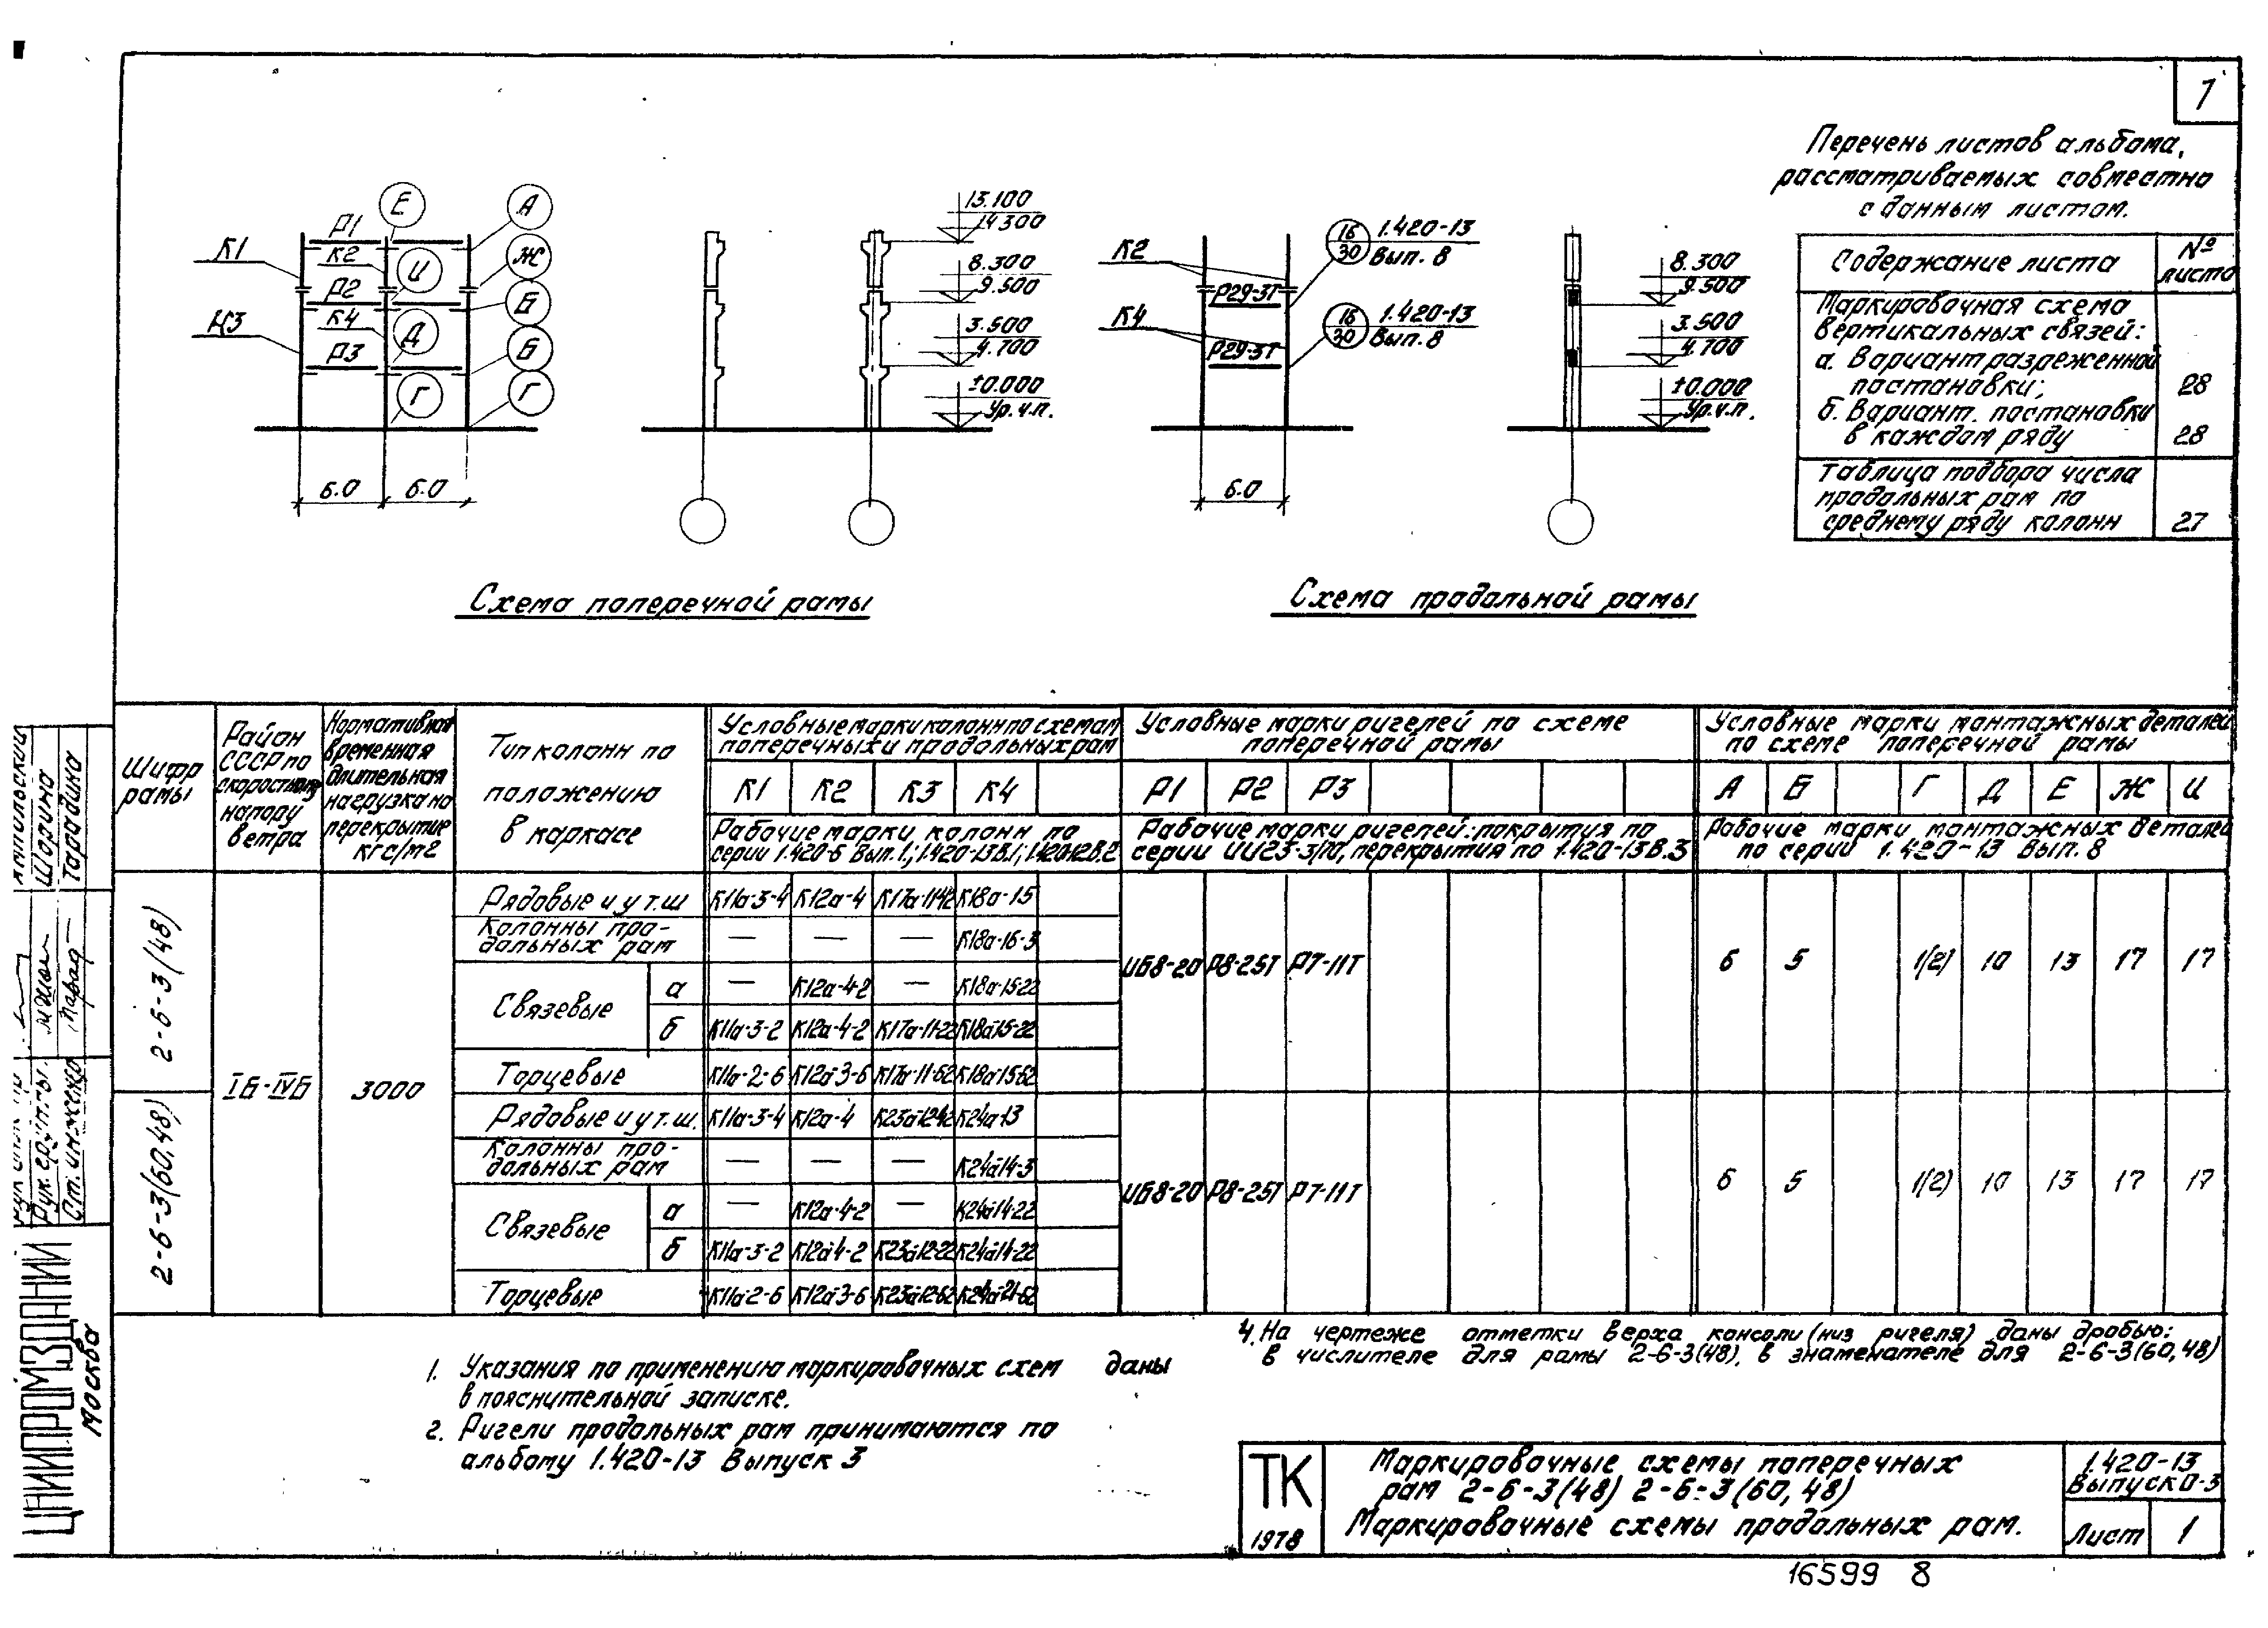 7
Перечень листов альбома,
рассматриваемых совместно
с данным листом.
Содержание листа
№ листа
Маркировочная схема
вертикальных связей:
а. Вариант разреженной
постановки;
28
б. Вариант постановки
в каждом ряду
28
Таблица подбора числа
продольных рам по
среднему ряду колонн
27
К1
К3
Р1
К2
Р2
К4
Р3
Е
А
И
Ж
Б
Д
Б
Г
Г
6.0
6.0
13.100
14.300
8.300
9.500
3.500
4.700
±0.000
Ур.ч.п.
Схема поперечной рамы
К2
К4
Р29-3Т
Р29-3Т
16
30
1.420-13
Вып. 8
16
30
1.420-13
Вып. 8
6.0
8.300
9.500
3.500
4.700
±0.000
Ур.ч.п.
Схема продольной рамы
Шифр рамы
Район СССР по скоростному напору ветра
Нормативная временная длительная нагрузка на перекрытие кгс/м2
Тип колонн по положению в каркасе
Условные марки колонн по схемам
поперечных и продольных рам
К1 К2 К3 К4
Рабочие марки колонн по
серии 1.420-6 Вып.1.; 1.420-13В.1; 1.420-12В.2
Условные марки ригелей по схеме
поперечной рамы
Р1 Р2 Р3
Рабочие марки ригелей: покрытия по
серии ИИ23-3/70, перекрытия по 1.420-13В.3
Условные марки монтажных деталей
по схеме поперечной рамы
А Б Г Д Е Ж И
Рабочие марки монтажных деталей
по серии 1.420-13 Вып. 8
2-6-3(48)
IБ-IVБ
3000
Рядовые и у т.ш К11а-3-4 К12а-4 К17а-11-42 К18а-15
Колонны продольных рам — — — К18а-16-3
Связевые
а — К12а-4-2 — К18а-15-22
б К11а-3-2 К12а-4-2 К17а-11-22 К18а-15-22
Торцевые К11а-2-6 К12а-3-6 К17а-11-62 К18а-15-62
ИБ8-20 Р8-25Т Р7-11Т
6 5 1(2) 10 13 17 17
2-6-3(60,48)
Рядовые и у т.ш. К11а-3-4 К12а-4 К23а-12-42 К24а-13
Колонны продольных рам — — — К24а-14-3
Связевые
а — К12а-4-2 — К24а-14-22
б К11а-3-2 К12а-4-2 К23а-12-22 К24а-14-22
Торцевые К11а-2-6 К12а-3-6 К23а-12-62 К24а-21-62
ИБ8-20 Р8-25Т Р7-11Т
6 5 1(2) 10 13 17 17
1. Указания по применению маркировочных схем даны
в пояснительной записке.
2. Ригели продольных рам принимаются по
альбому 1.420-13 Выпуск 3
4. На чертеже отметки верха консоли (низ ригеля) даны дробью:
в числителе для рамы 2-6-3(48), в знаменателе для 2-6-3(60,48)
ТК
1978
Маркировочные схемы поперечных
рам 2-6-3(48) 2-6-3(60,48)
Маркировочные схемы продольных рам.
1.420-13
Выпуск 0-3
Лист 1
16599 8
ЦНИИПРОМЗДАНИЙ
Москва
Рук. группы
Ст. инженер
Шорина
Тарадина